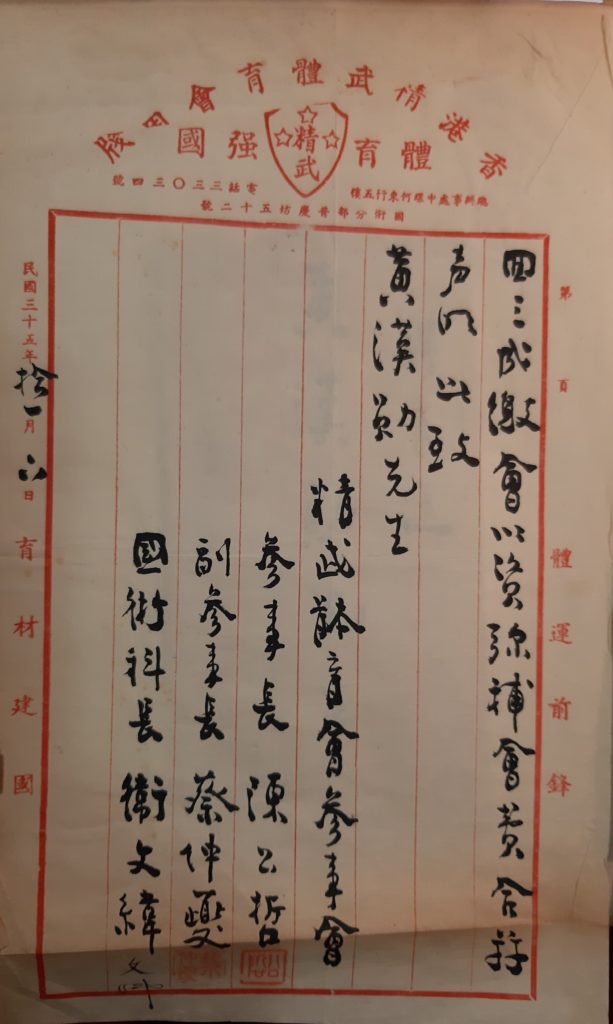 香港精武體育會用箋
體育
精武
强國
總辦事處中環何東行五樓
電話三三〇三四號
國術分部普慶坊五十二號
第 頁
體運前鋒
回三成繳會以資弥補會費合并
声明 此致
黃漢勛先生
精武體育會參事會
參事長 陳公哲
副參事長 蔡仲
國術科長 衛文緯
民國三十五年拾一月六日
育材建國